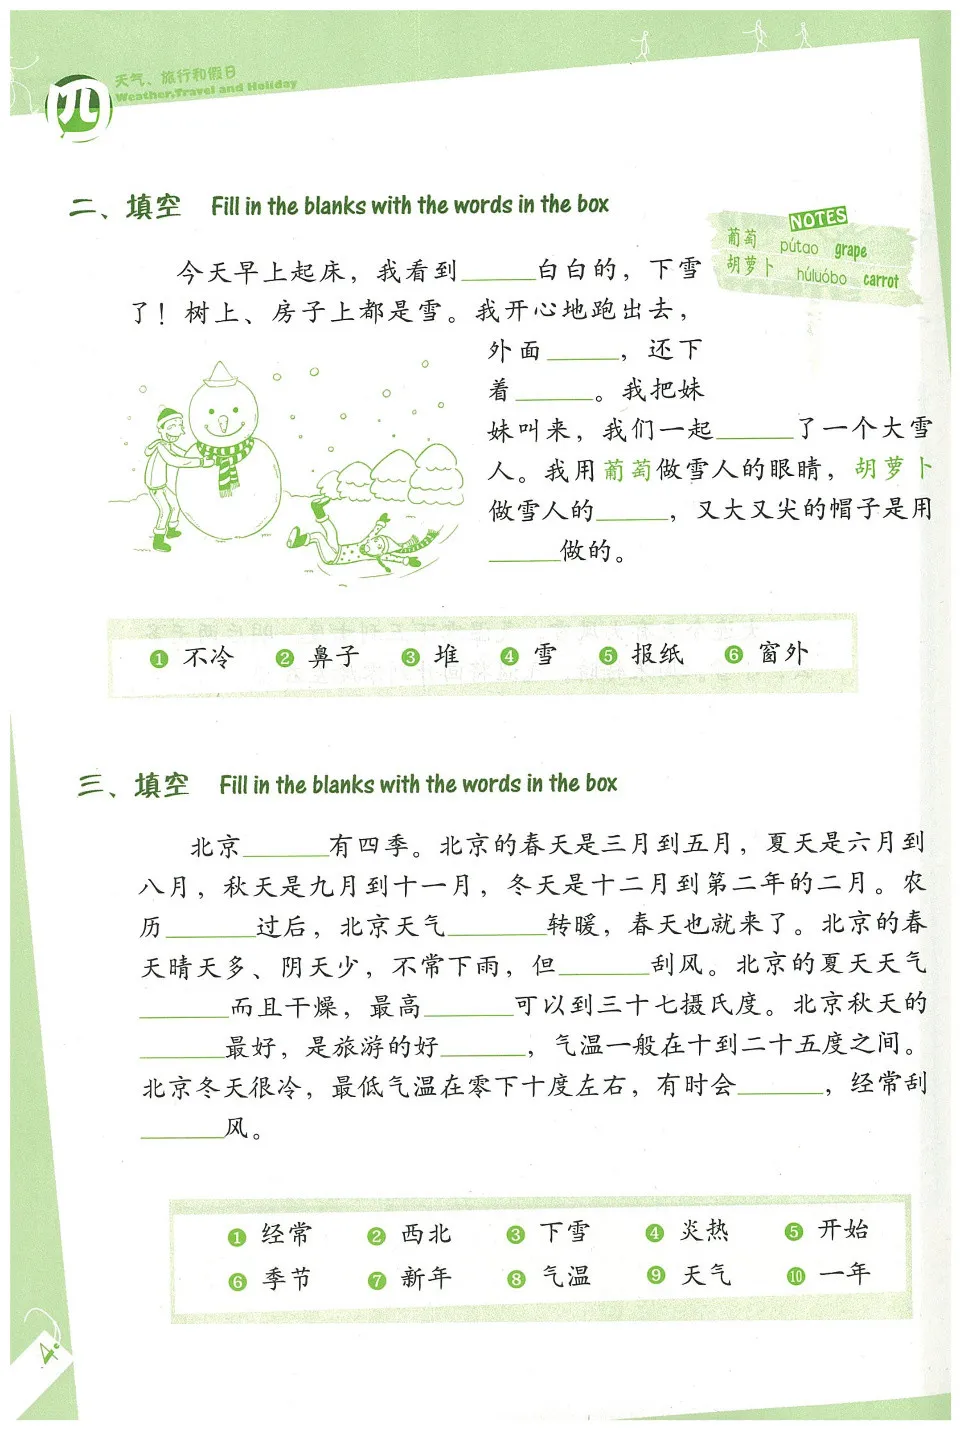 四
天气、旅行和假日
Weather,Travel and Holiday
二、填空 Fill in the blanks with the words in the box
NOTES
葡萄 pútao grape
胡萝卜 húluóbo carrot
今天早上起床，我看到______白白的，下雪
了！树上、房子上都是雪。我开心地跑出去，
外面______，还下
着______。我把妹
妹叫来，我们一起______了一个大雪
人。我用葡萄做雪人的眼睛，胡萝卜
做雪人的______，又大又尖的帽子是用
______做的。
❶ 不冷 ❷ 鼻子 ❸ 堆 ❹ 雪 ❺ 报纸 ❻ 窗外
三、填空 Fill in the blanks with the words in the box
北京______有四季。北京的春天是三月到五月，夏天是六月到
八月，秋天是九月到十一月，冬天是十二月到第二年的二月。农
历______过后，北京天气______转暖，春天也就来了。北京的春
天晴天多、阴天少，不常下雨，但______刮风。北京的夏天天气
______而且干燥，最高______可以到三十七摄氏度。北京秋天的
______最好，是旅游的好______，气温一般在十到二十五度之间。
北京冬天很冷，最低气温在零下十度左右，有时会______，经常刮
______风。
❶ 经常 ❷ 西北 ❸ 下雪 ❹ 炎热 ❺ 开始
❻ 季节 ❼ 新年 ❽ 气温 ❾ 天气 ❿ 一年
4